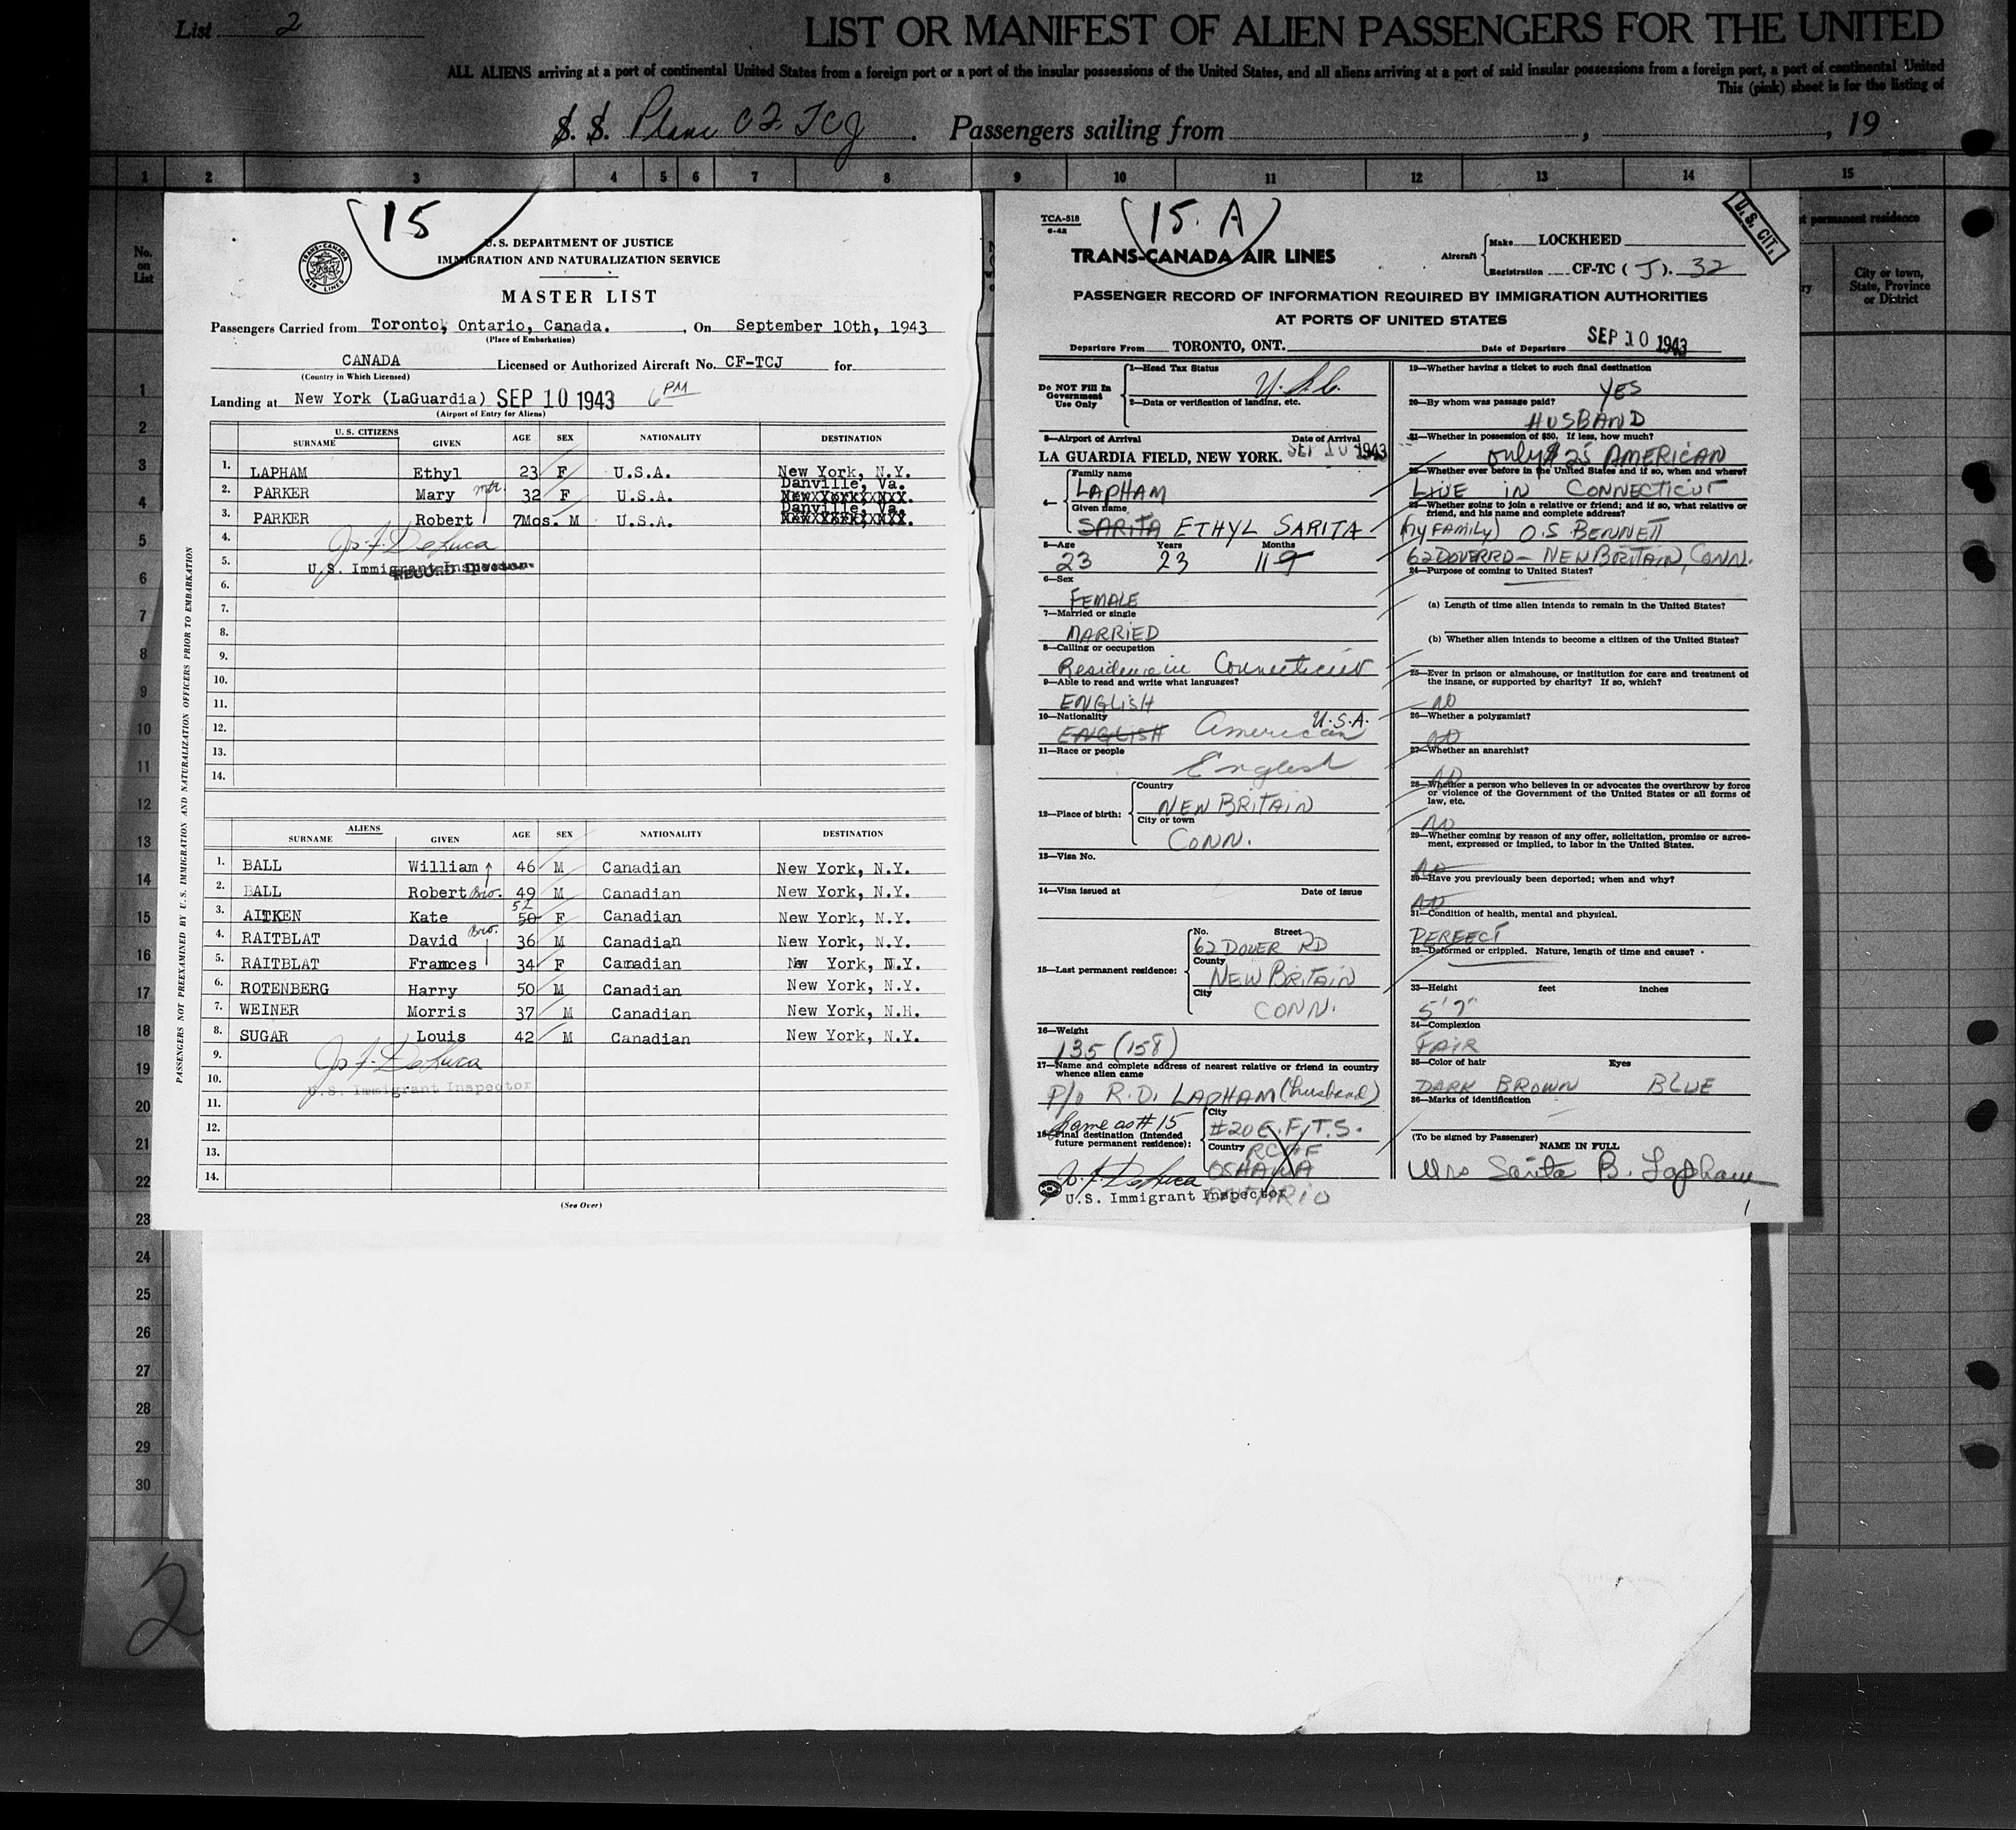 List 2
LIST OR MANIFEST OF ALIEN PASSENGERS FOR THE UNITED
ALL ALIENS arriving at a port of continental United States from a foreign port or a port of the insular possessions of the United States, and all aliens arriving at a port of said insular possessions from a foreign port, a port of continental United
This (pink) sheet is for the listing of
S. S. Plane CF TCJ . Passengers sailing from , , 19
1 2 3 4 5 6 7 8 9 10 11 12 13 14 15
No. on List
t permanent residence
City or town, State, Province or District
1
2
3
4
5
6
7
8
9
10
11
12
13
14
15
16
17
18
19
20
21
22
23
24
25
26
27
28
29
30
2
15
TRANS-CANADA AIR LINES
U. S. DEPARTMENT OF JUSTICE
IMMIGRATION AND NATURALIZATION SERVICE
MASTER LIST
Passengers Carried from Toronto, Ontario, Canada. , On September 10th, 1943
(Place of Embarkation)
CANADA Licensed or Authorized Aircraft No. CF-TCJ for
(Country in Which Licensed)
Landing at New York (LaGuardia) SEP 10 1943 6 PM
(Airport of Entry for Aliens)
PASSENGERS NOT PREEXAMINED BY U.S. IMMIGRATION AND NATURALIZATION OFFICERS PRIOR TO EMBARKATION
U. S. CITIZENS
SURNAME GIVEN AGE SEX NATIONALITY DESTINATION
1. LAPHAM Ethyl 23 F U.S.A. New York, N.Y.
2. PARKER Mary mtr. 32 F U.S.A. Danville, Va.
3. PARKER Robert 7Mos. M U.S.A. Danville, Va.
4. Jos F. DeLuca
5. U.S. Immigrant Inspector
6.
7.
8.
9.
10.
11.
12.
13.
14.
ALIENS
SURNAME GIVEN AGE SEX NATIONALITY DESTINATION
1. BALL William 46 M Canadian New York, N.Y.
2. BALL Robert Bro. 49 M Canadian New York, N.Y.
3. AITKEN Kate 50 52 F Canadian New York, N.Y.
4. RAITBLAT David Bro. 36 M Canadian New York, N.Y.
5. RAITBLAT Frances 34 F Canadian New York, N.Y.
6. ROTENBERG Harry 50 M Canadian New York, N.Y.
7. WEINER Morris 37 M Canadian New York, N.H.
8. SUGAR Louis 42 M Canadian New York, N.Y.
9. Jos F. DeLuca
10. U.S. Immigrant Inspector
11.
12.
13.
14.
(See Over)
TCA-518
6-42
15. A
U. S. CIT.
TRANS-CANADA AIR LINES
Aircraft
Make LOCKHEED
Registration CF-TC (J). 32
PASSENGER RECORD OF INFORMATION REQUIRED BY IMMIGRATION AUTHORITIES
AT PORTS OF UNITED STATES
Departure From TORONTO, ONT. Date of Departure SEP 10 1943
Do NOT Fill In Government Use Only
1—Head Tax Status U.S.C.
2—Data or verification of landing, etc.
3—Airport of Arrival Date of Arrival
LA GUARDIA FIELD, NEW YORK. SEP 10 1943
4—
Family name
LAPHAM
Given name
SARITA ETHYL SARITA
5—Age Years Months
23 23 11
6—Sex
FEMALE
7—Married or single
MARRIED
8—Calling or occupation
Residence in Connecticut
9—Able to read and write what languages?
ENGLISH
10—Nationality U.S.A.
ENGLISH American
11—Race or people
English
12—Place of birth:
Country
NEW BRITAIN
City or town
CONN.
13—Visa No.
14—Visa issued at Date of issue
15—Last permanent residence:
No. Street
62 DOVER RD
County
NEW BRITAIN
City
CONN.
16—Weight
135 (158)
17—Name and complete address of nearest relative or friend in country whence alien came
P/O R.D. LAPHAM (husband)
Same as # 15
18—Final destination (Intended future permanent residence):
City
#20 E.F.T.S.
Country RCAF
OSHAWA
ONTARIO
Jos F. DeLuca
U.S. Immigrant Inspector
19—Whether having a ticket to such final destination
YES
20—By whom was passage paid?
HUSBAND
21—Whether in possession of $50. If less, how much?
only $ 25 AMERICAN
22—Whether ever before in the United States and if so, when and where?
LIVE IN CONNECTICUT
23—Whether going to join a relative or friend; and if so, what relative or friend, and his name and complete address?
MY FAMILY) O.S. BENNETT
62 DOVER RD - NEW BRITAIN, CONN.
24—Purpose of coming to United States?
(a) Length of time alien intends to remain in the United States?
(b) Whether alien intends to become a citizen of the United States?
25—Ever in prison or almshouse, or institution for care and treatment of the insane, or supported by charity? If so, which?
NO
26—Whether a polygamist?
NO
27—Whether an anarchist?
NO
28—Whether a person who believes in or advocates the overthrow by force or violence of the Government of the United States or all forms of law, etc.
NO
29—Whether coming by reason of any offer, solicitation, promise or agreement, expressed or implied, to labor in the United States.
NO
30—Have you previously been deported; when and why?
NO
31—Condition of health, mental and physical.
PERFECT
32—Deformed or crippled. Nature, length of time and cause?
33—Height feet inches
5'7"
34—Complexion
FAIR
35—Color of hair Eyes
DARK BROWN BLUE
36—Marks of identification
(To be signed by Passenger)
NAME IN FULL
Mrs Sarita B. Lapham
1